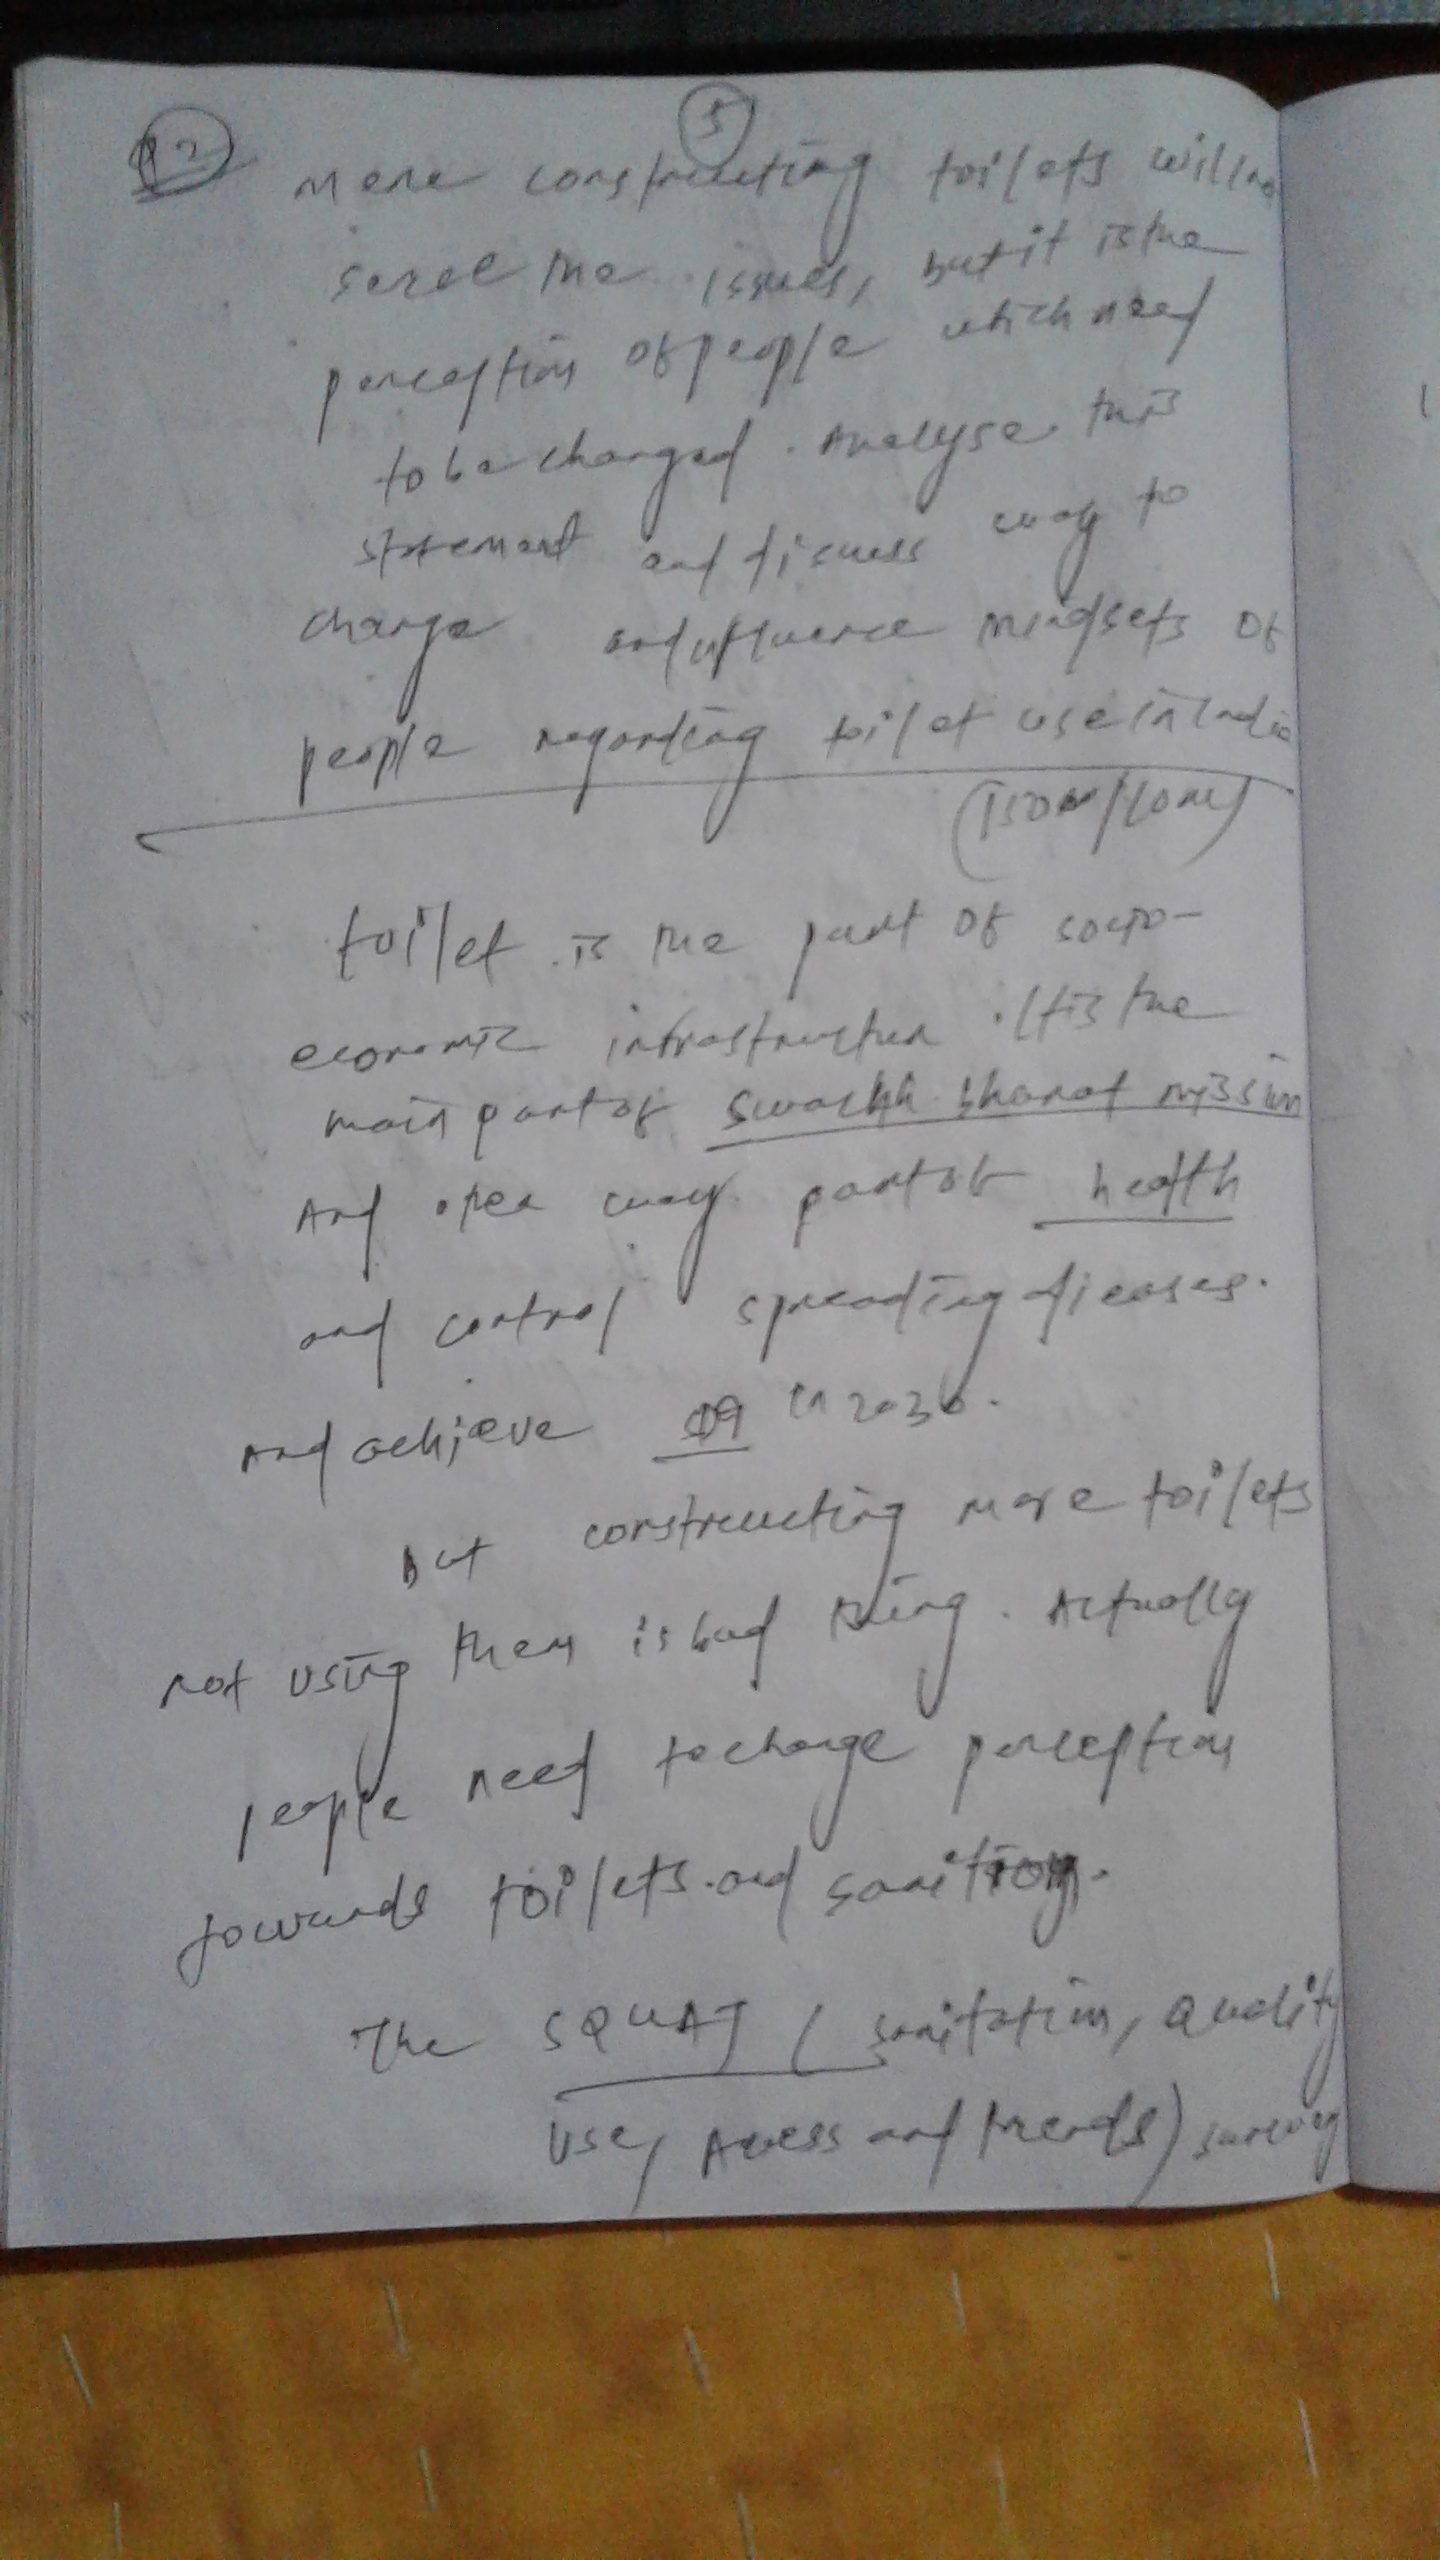 5
Q2
Mere constructing toilets will no
the issues, but it is the
perception of people which need
to be changed. Analyse this
statement and discuss way to
change and influence mindsets of
people regarding toilet use in India
(150w/10m)
toilet is the part of socio-
economic infrastructur. It is the
main part of Swachh Bharat mission
And open way part of health
and control spreading dieases.
And achieve in 2030.
But constructing more toilets
not using them is bad thing. Actually
people need to change perception
towards toilets and
The SQUAT (sanitation, Quality
Use, Access and trends) survey